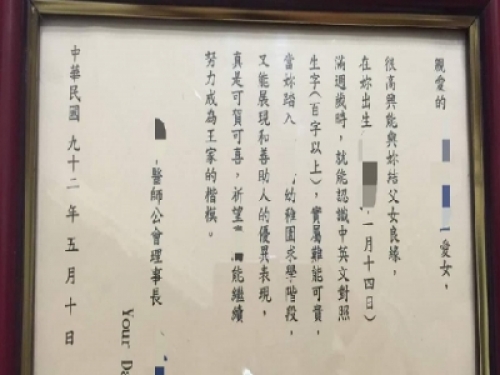 親愛的 愛女，
很高興能與妳結父女良緣，
在妳出生 一月十四日）
滿週歲時，就能認識中英文對照
生字（百字以上），實屬難能可貴，
當妳踏入 幼稚園求學階段，
又能展現和善助人的優異表現，
真是可賀可喜，祈望 能繼續
努力成為王家的楷模。
醫師公會理事長
Your Da
中華民國 九十二 年 五 月 十 日